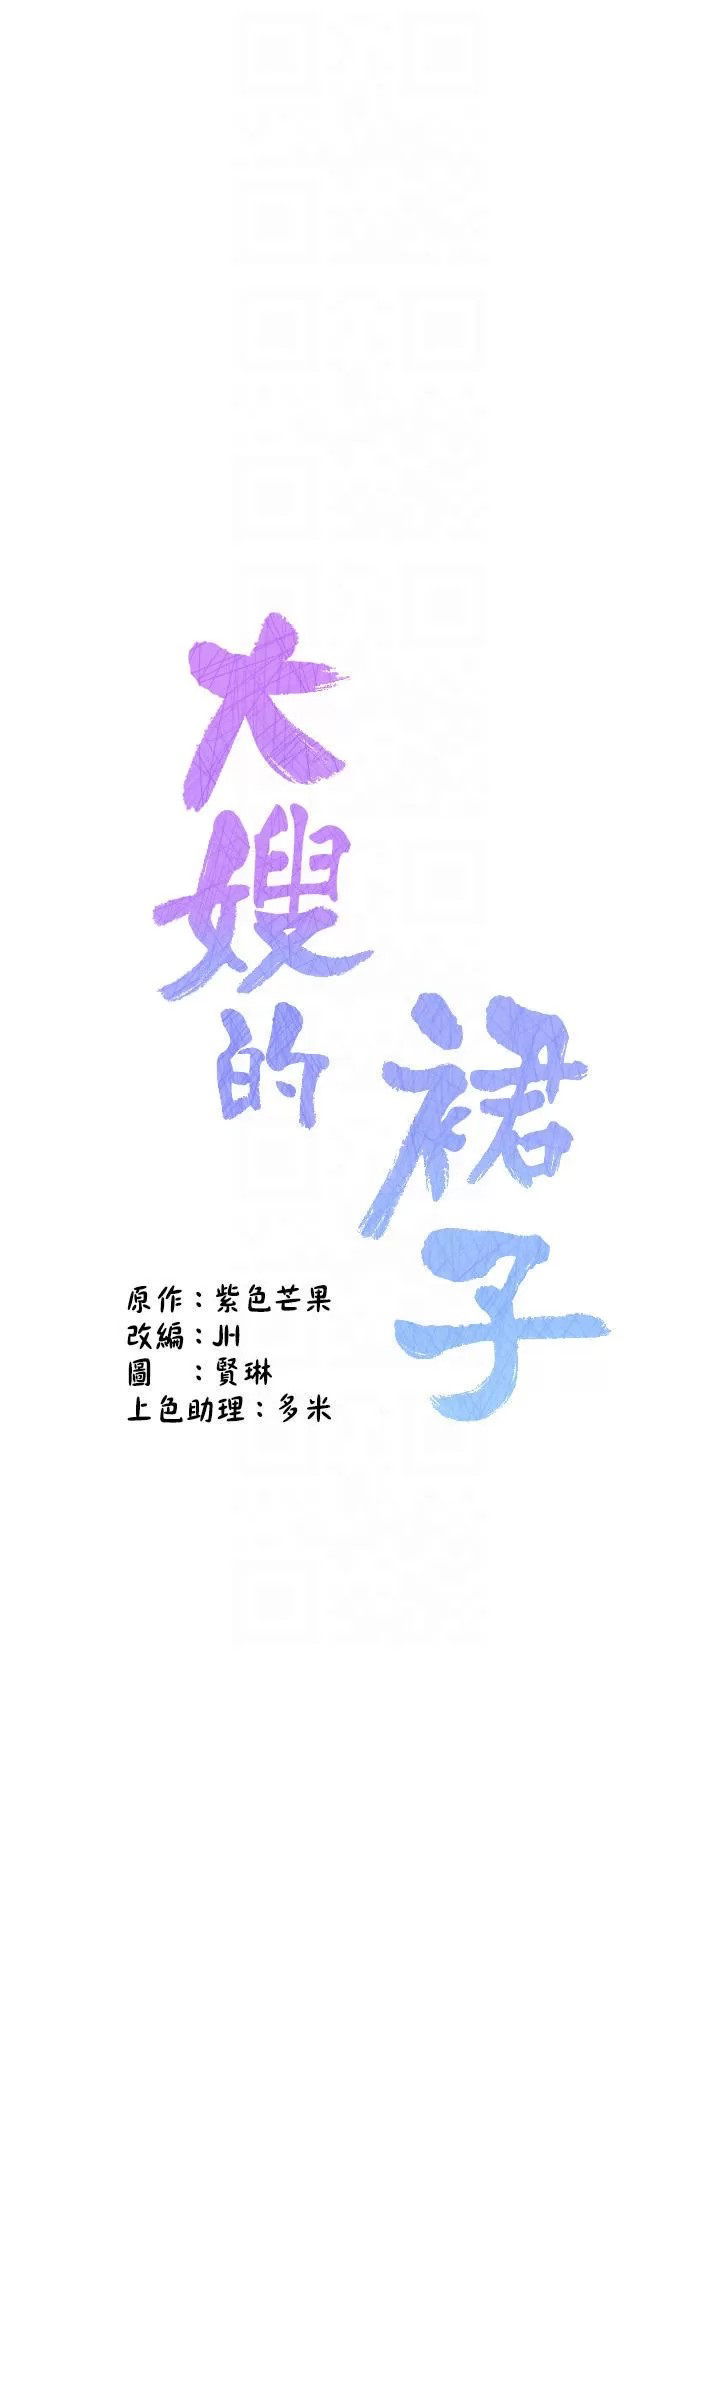 大嫂的
裙子
原作：紫色芒果
改編：JH
圖　：賢琳
上色助理：多米